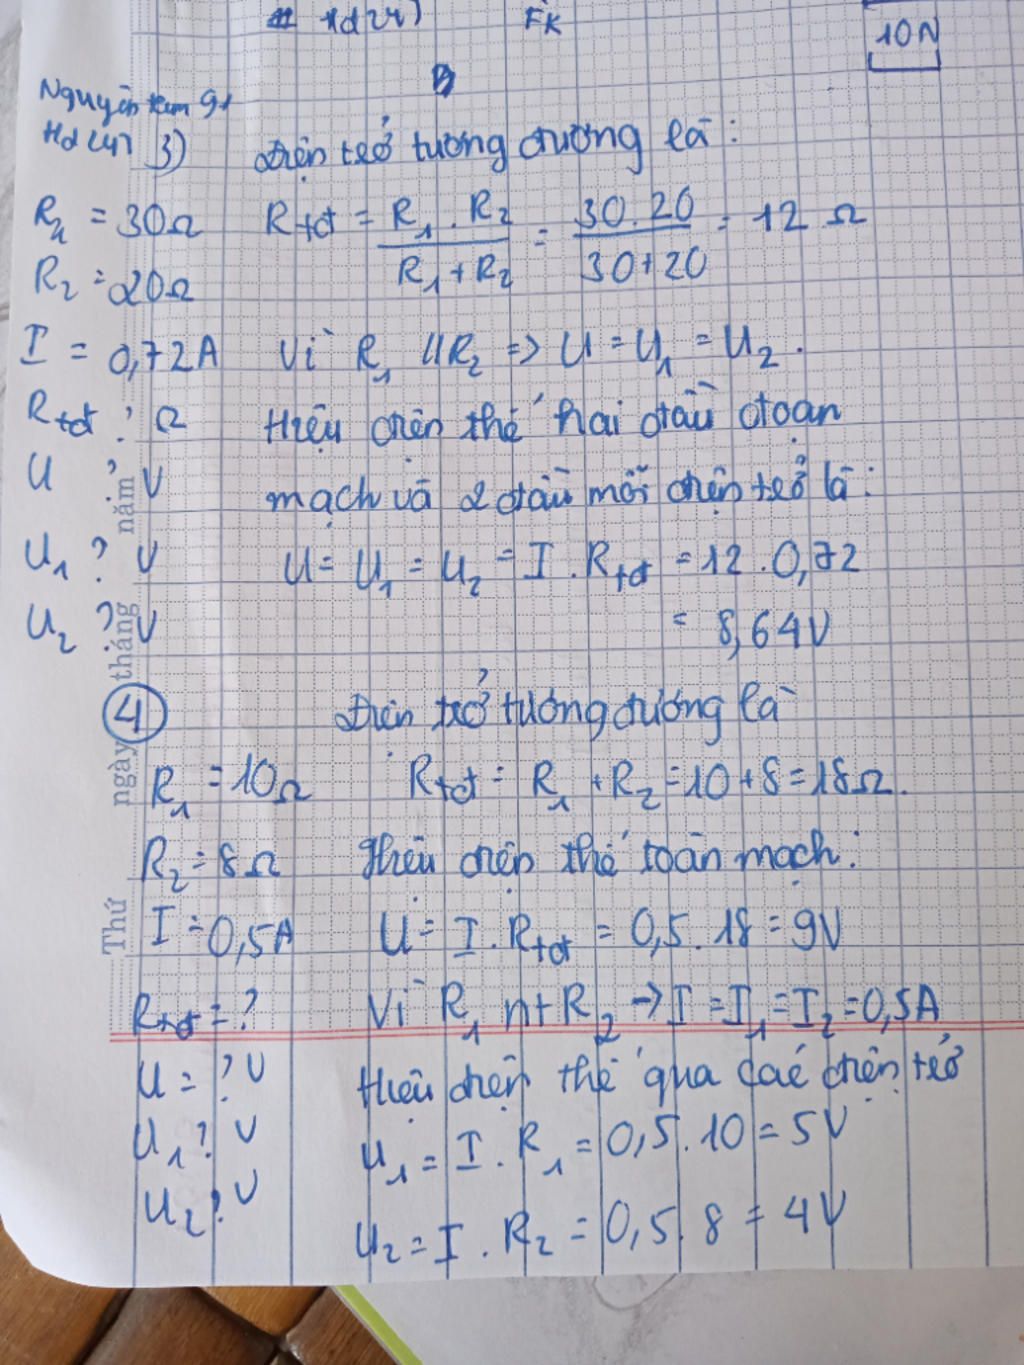 10N
3) Điện trở tương đương là:
R₁ = 30Ω
R₂ = 20Ω
Rtđ = R₁.R₂ / R₁+R₂ = 30.20 / 30+20 = 12 Ω
I = 0,72A
Vì R₁ // R₂ => U = U₁ = U₂.
Rtđ ? Ω
Hiệu điện thế hai đầu đoạn
U ? V
mạch và 2 đầu mỗi điện trở là:
U₁ ? V
U = U₁ = U₂ = I.Rtđ = 12.0,72
U₂ ? V
= 8,64V
4 Điện trở tương đương là
R₁ = 10Ω
Rtđ = R₁ + R₂ = 10 + 8 = 18Ω.
R₂ = 8Ω
Hiệu điện thế toàn mạch:
I = 0,5A
U = I.Rtđ = 0,5.18 = 9V
Rtđ = ?
Vì R₁ nt R₂ → I = I₁ = I₂ = 0,5A
U = ? V
Hiệu điện thế qua các điện trở
U₁ ? V
U₁ = I.R₁ = 0,5.10 = 5V
U₂ ? V
U₂ = I.R₂ = 0,5.8 = 4V
Thứ ngày tháng năm